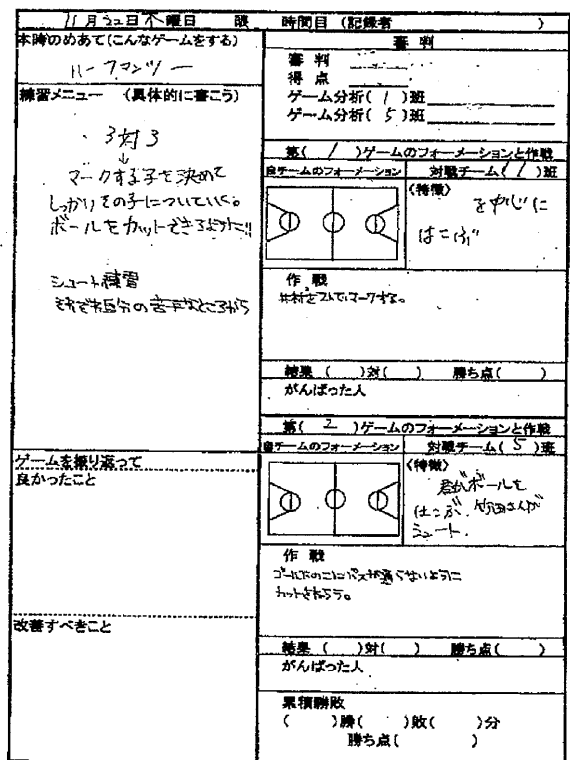 11月22日木曜日 限 時間目（記録者 ）
本時のめあて(こんなゲームをする)
ハーフマンツー
練習メニュー （具体的に書こう）
・3対3
↓
マークする子を決めて
しっかりその子についていく。
ボールをカットできるように!!
シュート練習
それぞれ自分の苦手なところから
ゲームを振り返って
良かったこと
改善すべきこと
審 判
審 判
得 点
ゲーム分析( 1 )班
ゲーム分析( 5 )班
第( 1 )ゲームのフォーメーションと作戦
自チームのフォーメーション 対戦チーム( 1 )班
〈特徴〉
を中心に
はこぶ
作 戦
2人でマークする。
結果 ( )対( ) 勝ち点( )
がんばった人
第( 2 )ゲームのフォーメーションと作戦
自チームのフォーメーション 対戦チーム( 5 )班
〈特徴〉
ボールを
はこぶ。竹田さんが
シュート。
作 戦
ゴール下のこにパスが通らないように
カットをねらう。
結果 ( )対( ) 勝ち点( )
がんばった人
累積勝敗
( )勝( )敗( )分
勝ち点( )